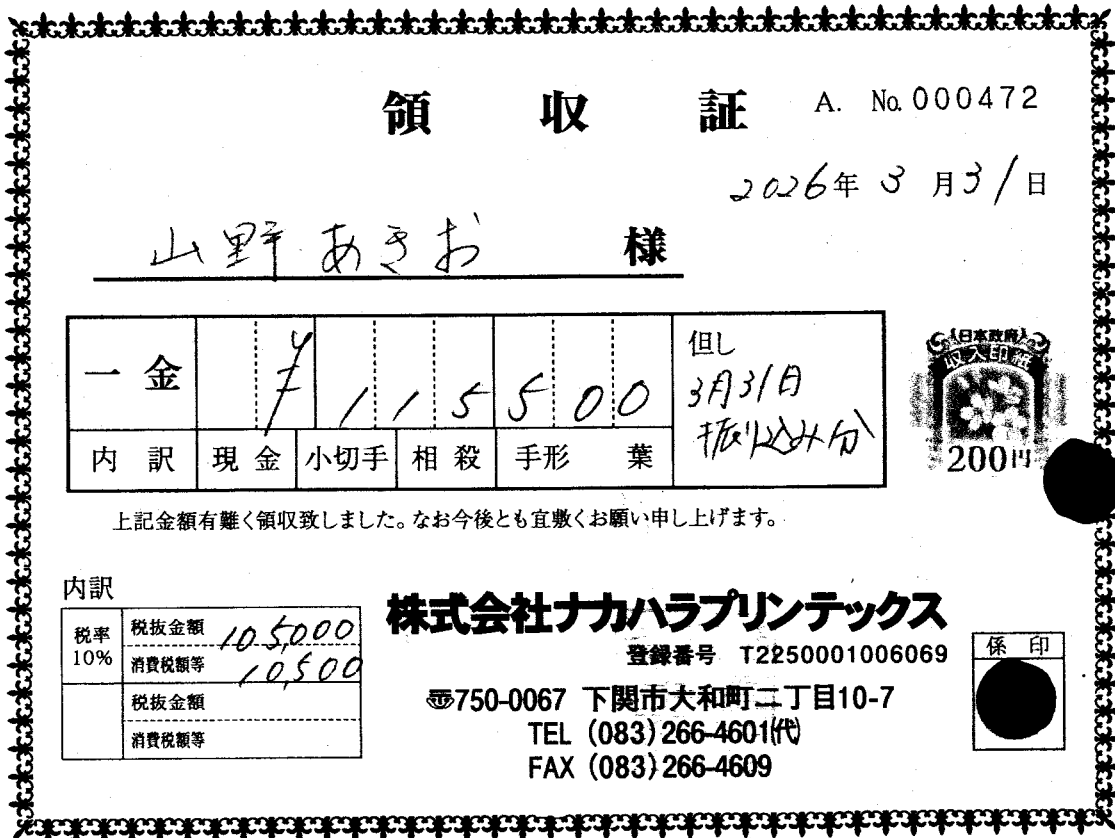 領収証 A. No.000472
2026年3月31日
山野あきお 様
一金 ¥115500
但し
3月31日
振り込み分
内訳 現金 小切手 相殺 手形 葉
日本政府
収入印紙
200円
上記金額有難く領収致しました。なお今後とも宜敷くお願い申し上げます。
内訳
税率 10% 税抜金額 105,000
消費税額等 10,500
税抜金額
消費税額等
株式会社ナカハラプリンテックス
登録番号 T2250001006069
〠750-0067 下関市大和町二丁目10-7
TEL (083)266-4601(代)
FAX (083)266-4609
係印